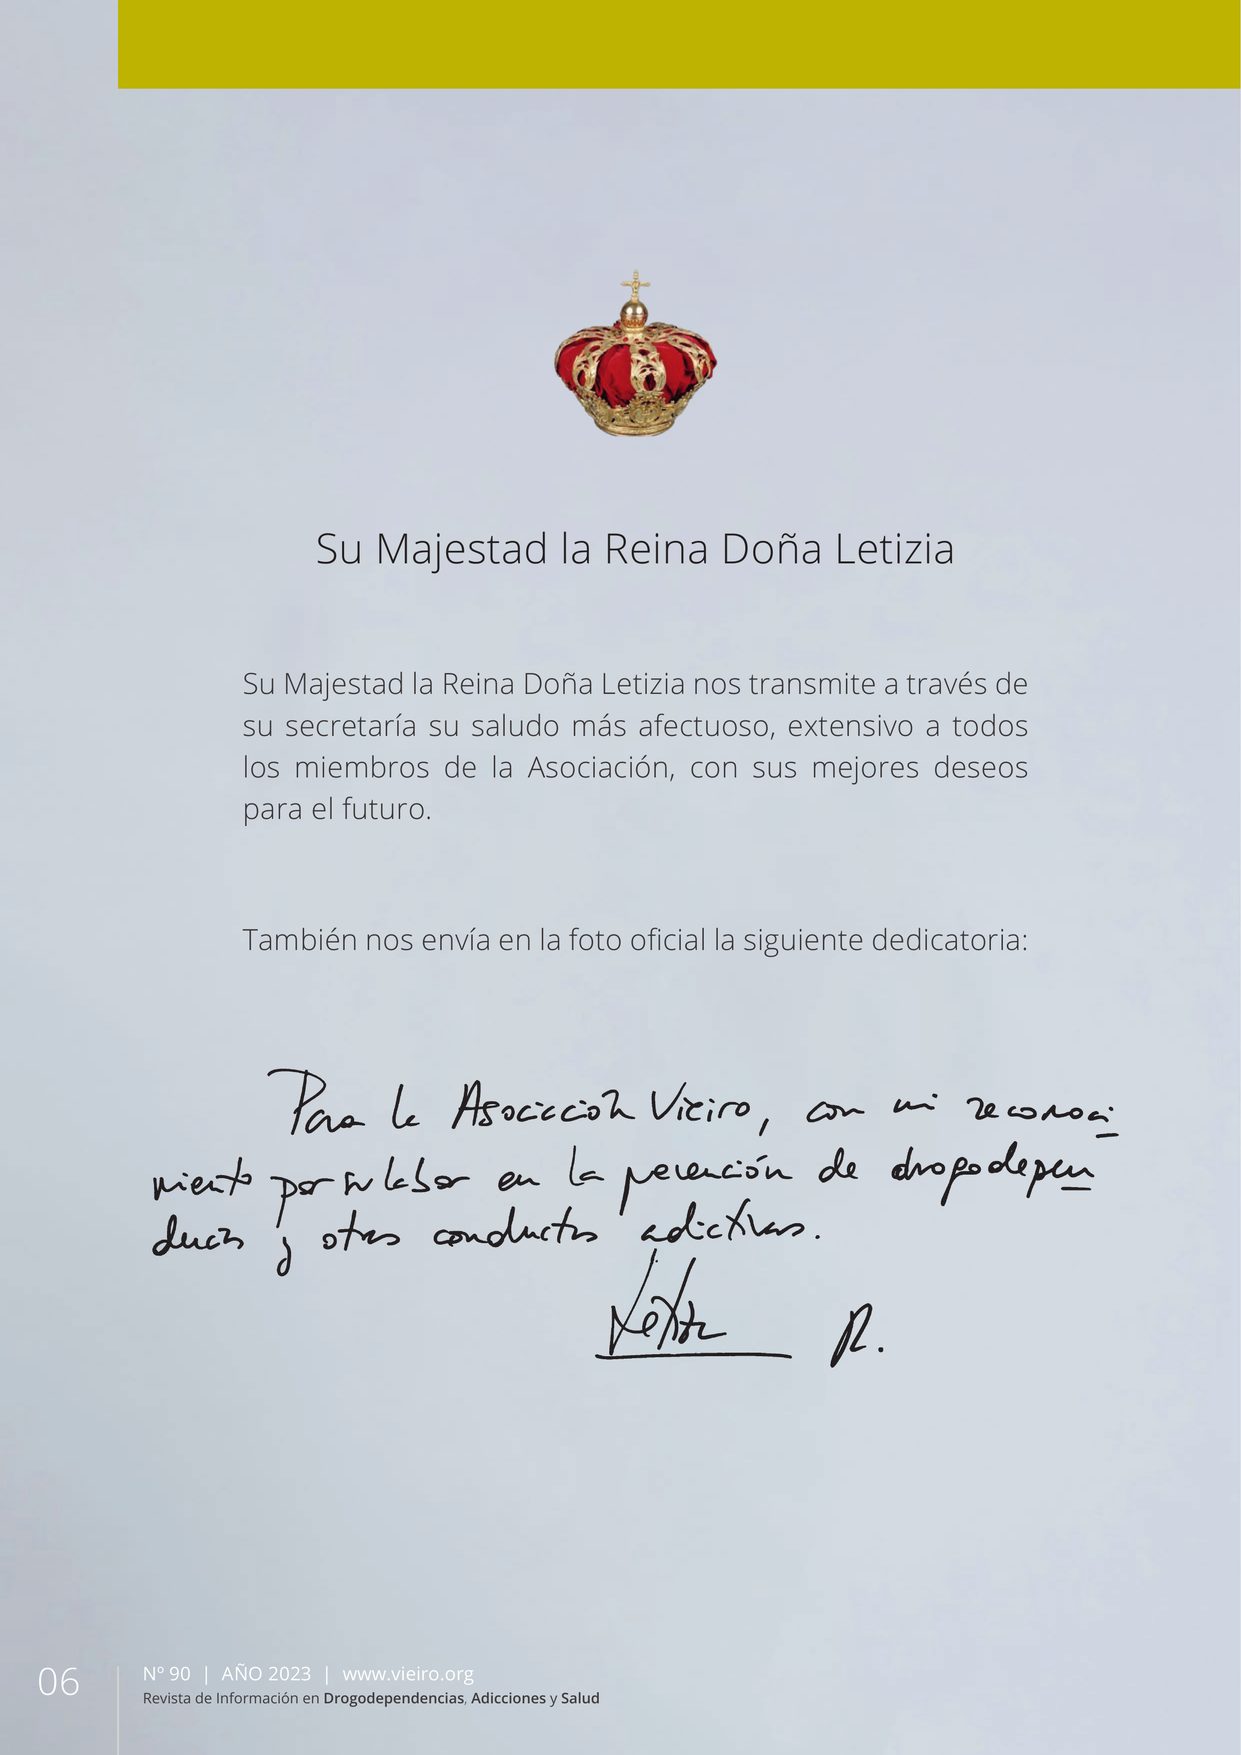 Su Majestad la Reina Doña Letizia
Su Majestad la Reina Doña Letizia nos transmite a través de
su secretaría su saludo más afectuoso, extensivo a todos
los miembros de la Asociación, con sus mejores deseos
para el futuro.
También nos envía en la foto oficial la siguiente dedicatoria:
Para la Asociación Vieiro, con mi reconoci
miento por su labor en la prevención de drogodepen
dencias y otras conductas adictivas.
Letizia R.
06
Nº 90 | AÑO 2023 | www.vieiro.org
Revista de Información en Drogodependencias, Adicciones y Salud